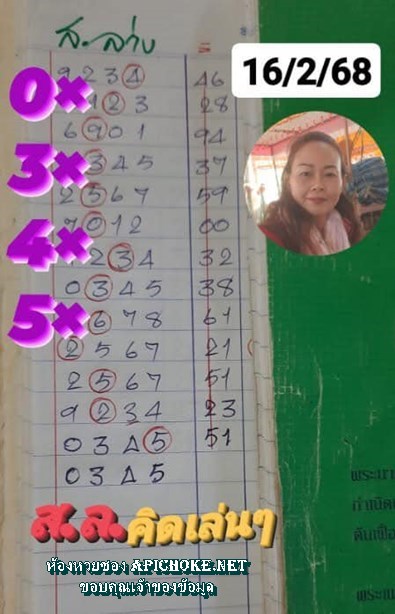 ส.ล่าง
16/2/68
9 2 3 4 46
1 2 3 28
6 9 0 1 94
3 4 5 37
2 5 6 7 59
7 0 1 2 00
2 3 4 32
0 3 4 5 38
6 7 8 61
2 5 6 7 21
2 5 6 7 51
9 2 3 4 23
0 3 4 5 51
0 3 4 5
0×
3×
4×
5×
ส.ล.คิดเล่นๆ
ห้องหวยซอง APICHOKE.NET
ขอบคุณเจ้าของข้อมูล